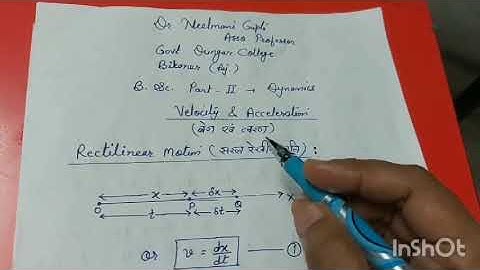 Dr. Neelmani Gupta
Asso. Professor
Govt Dungar College
Bikaner (Raj.)
B. Sc. Part - II → Dynamics
Velocity & Acceleration
(वेग एवं त्वरण)
Rectilinear Motion (सरल रेखीय :
x δx
O P Q X
t δt
Or v = dx/dt ——— ①
InShOt